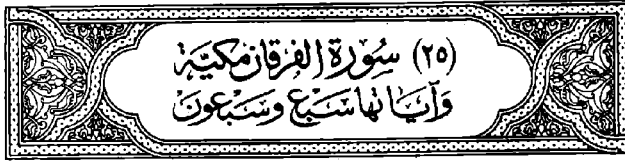 (٢٥) سُورَة الفُرقَان مَكيَّة
وَآيَاتهَا سَبْع وَسَبْعُون